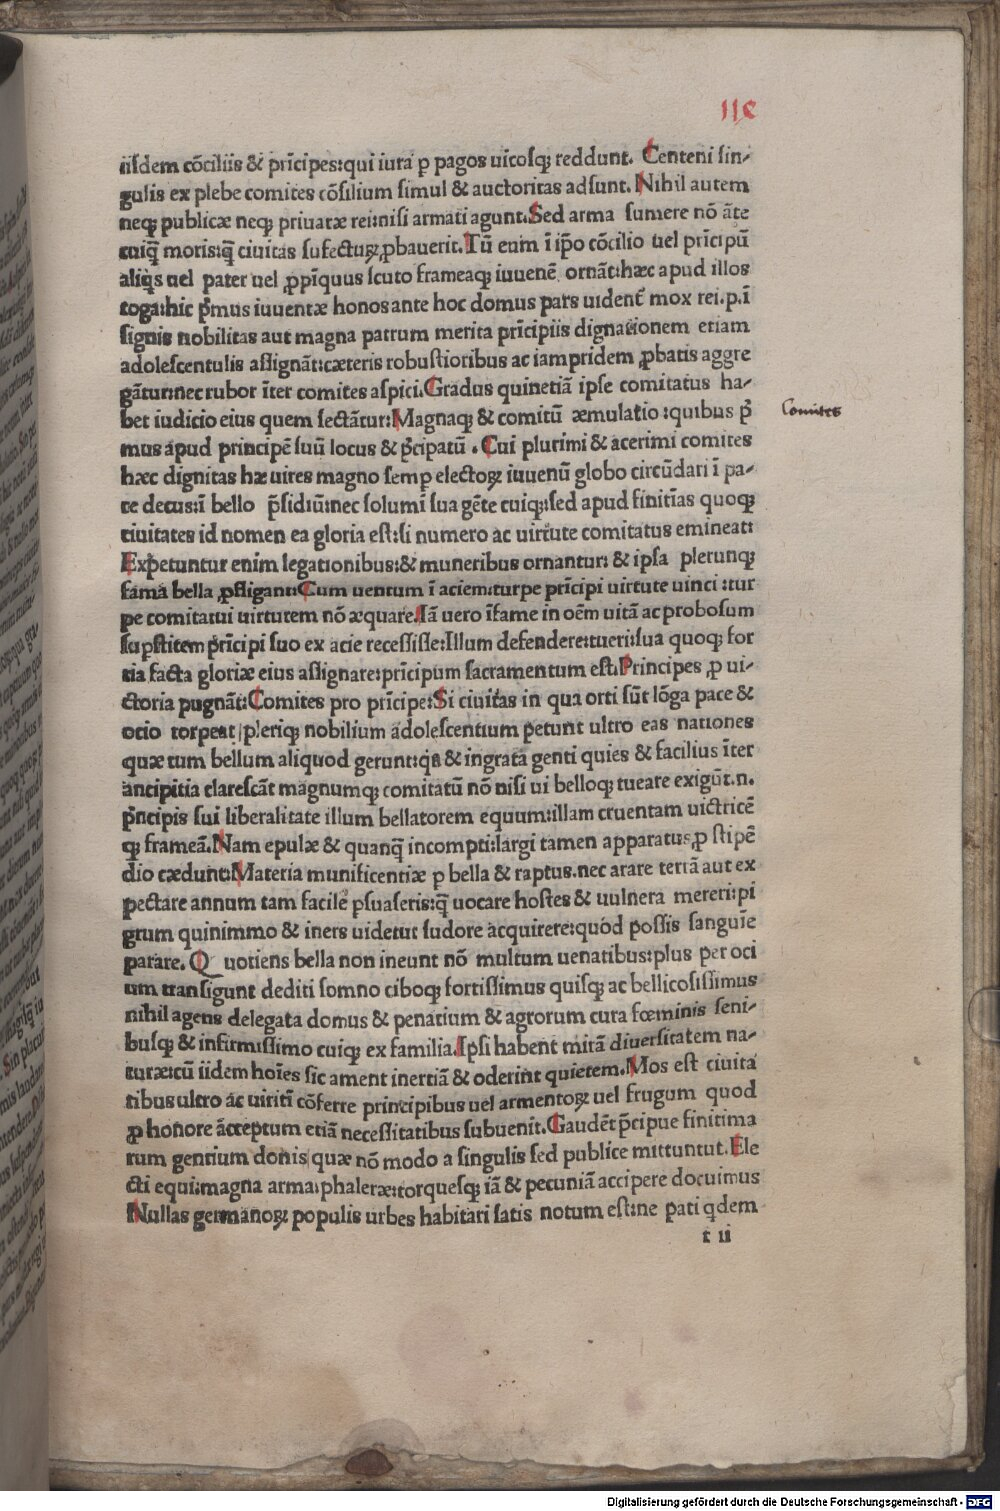 iisdem cōciliis & prīcipes:qui iura ꝑ pagos uicosqꝫ reddunt. Centeni sin-
gulis ex plebe comites cōsilium simul & auctoritas adsunt. Nihil autem
neqꝫ publicæ neqꝫ priuatæ rei:nisi armati agunt. Sed arma sumere nō āte
cuiq̄ moris:q̄ ciuitas suffecturꝫ ꝓbauerit. Tū eum ī ip̄o cōcilio uel prīcipū
aliq̇s uel pater uel ꝓpīquus scuto frameaqꝫ iuuenē ornāt:hæc apud illos
toga:hic p̄mus iuuentæ honos ante hoc domus pars uident̄ mox rei.p.ī
signis nobilitas aut magna patrum merita prīcipiis dignationem etiam
adolescentulis assignāt:cæteris robustioribus ac iampridem ꝓbatis aggre
gātur:nec rubor īter comites aspici. Gradus quinetiā ipse comitatus ha-
bet iudicio eius quem sectātur: Magnaqꝫ & comitū æmulatio :quibus p̄
mus apud principē suū locus & p̄cipatū . Cui plurimi & acerimi comites
hæc dignitas hæ uires magno semꝑ electoꝝ iuuenū globo circūdari ī pa-
ce decus:ī bello p̄sidiū:nec solum ī sua gēte cuiqꝫ:sed apud finitīas quoqꝫ
ciuitates id nomen ea gloria est:si numero ac uirtute comitatus emineat:
Expetuntur enim legationibus:& muneribus ornantur: & ipsa plerunqꝫ
fama bella ꝓfligant: Cum uentum ī aciem:turpe prīcipi uirtute uinci :tur
pe comitatui uirtutem nō æquare. Iā uero īfame in oēm uitā ac probosum
suꝑstitem prīcipi suo ex acie recessisse:Illum defendere:tueri:sua quoqꝫ for
tia facta gloriæ eius assignare:prīcipum sacramentum est. Principes ꝓ ui-
ctoria pugnāt: Comites pro prīcipe: Si ciuitas in qua orti sūt lōga pace &
ocio torpeat |pleriqꝫ nobilium adolescentium petunt ultro eas nationes
quæ tum bellum aliquod gerunt:q̇a & ingrata genti quies & facilius īter
ancipitia clarescāt magnumqꝫ comitatū nō nisi ui belloqꝫ tueare exigūt.n.
p̄ncipis sui liberalitate illum bellatorem equum:illam cruentam uictricē
qꝫ frameā. Nam epulæ & quanq̄ incompti:largi tamen apparatus ꝓ stipē
dio cædunt: Materia munificentiæ ꝑ bella & raptus.nec arare terrā aut ex
pectare annum tam facile ꝑsuaseris:q̄ uocare hostes & uulnera mereri:pi
grum quinimmo & iners uidetur sudore acquirere:quod possis sanguīe
parare. Quotiens bella non ineunt nō multum uenatibus:plus per oci
um transigunt dediti somno ciboqꝫ fortissimus quisqꝫ ac bellicosissimus
nihil agens delegata domus & penatium & agrorum cura fœminis seni-
busqꝫ & infirmissimo cuiqꝫ ex familia. Ipsi habent mirā diuersitatem na-
turæ:cū iidem hoīes sic ament inertiā & oderint quietem. Mos est ciuita
tibus ultro ac uiritī cōferre principibus uel armentoꝝ uel frugum quod
ꝓ honore acceptum etiā necessitatibus subuenit. Gaudēt p̄cipue finitima
rum gentium donis|quæ nō modo a singulis sed publice mittuntur. Ele
cti equi:magna arma:phaleræ:torquesqꝫ iā & pecuniā accipere docuimus
Nullas germanoꝝ populis urbes habitari satis notum est:ne pati q̇dem
t ii
Comites
Digitalisierung gefördert durch die Deutsche Forschungsgemeinschaft - DFG